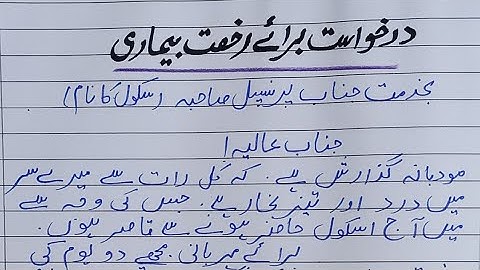 درخواست برائے رخصت بیماری
بخدمت جناب پرنسپل صاحبہ (سکول کا نام)
جناب عالیہ!
مودبانہ گذارش ہے۔ کہ کل رات سے میرے سر
میں درد اور تیز بخار ہے۔ جس کی وجہ سے
میں آج اسکول حاضر ہونے سے قاصر ہوں۔
برائے مہربانی۔ مجھے دو یوم کی